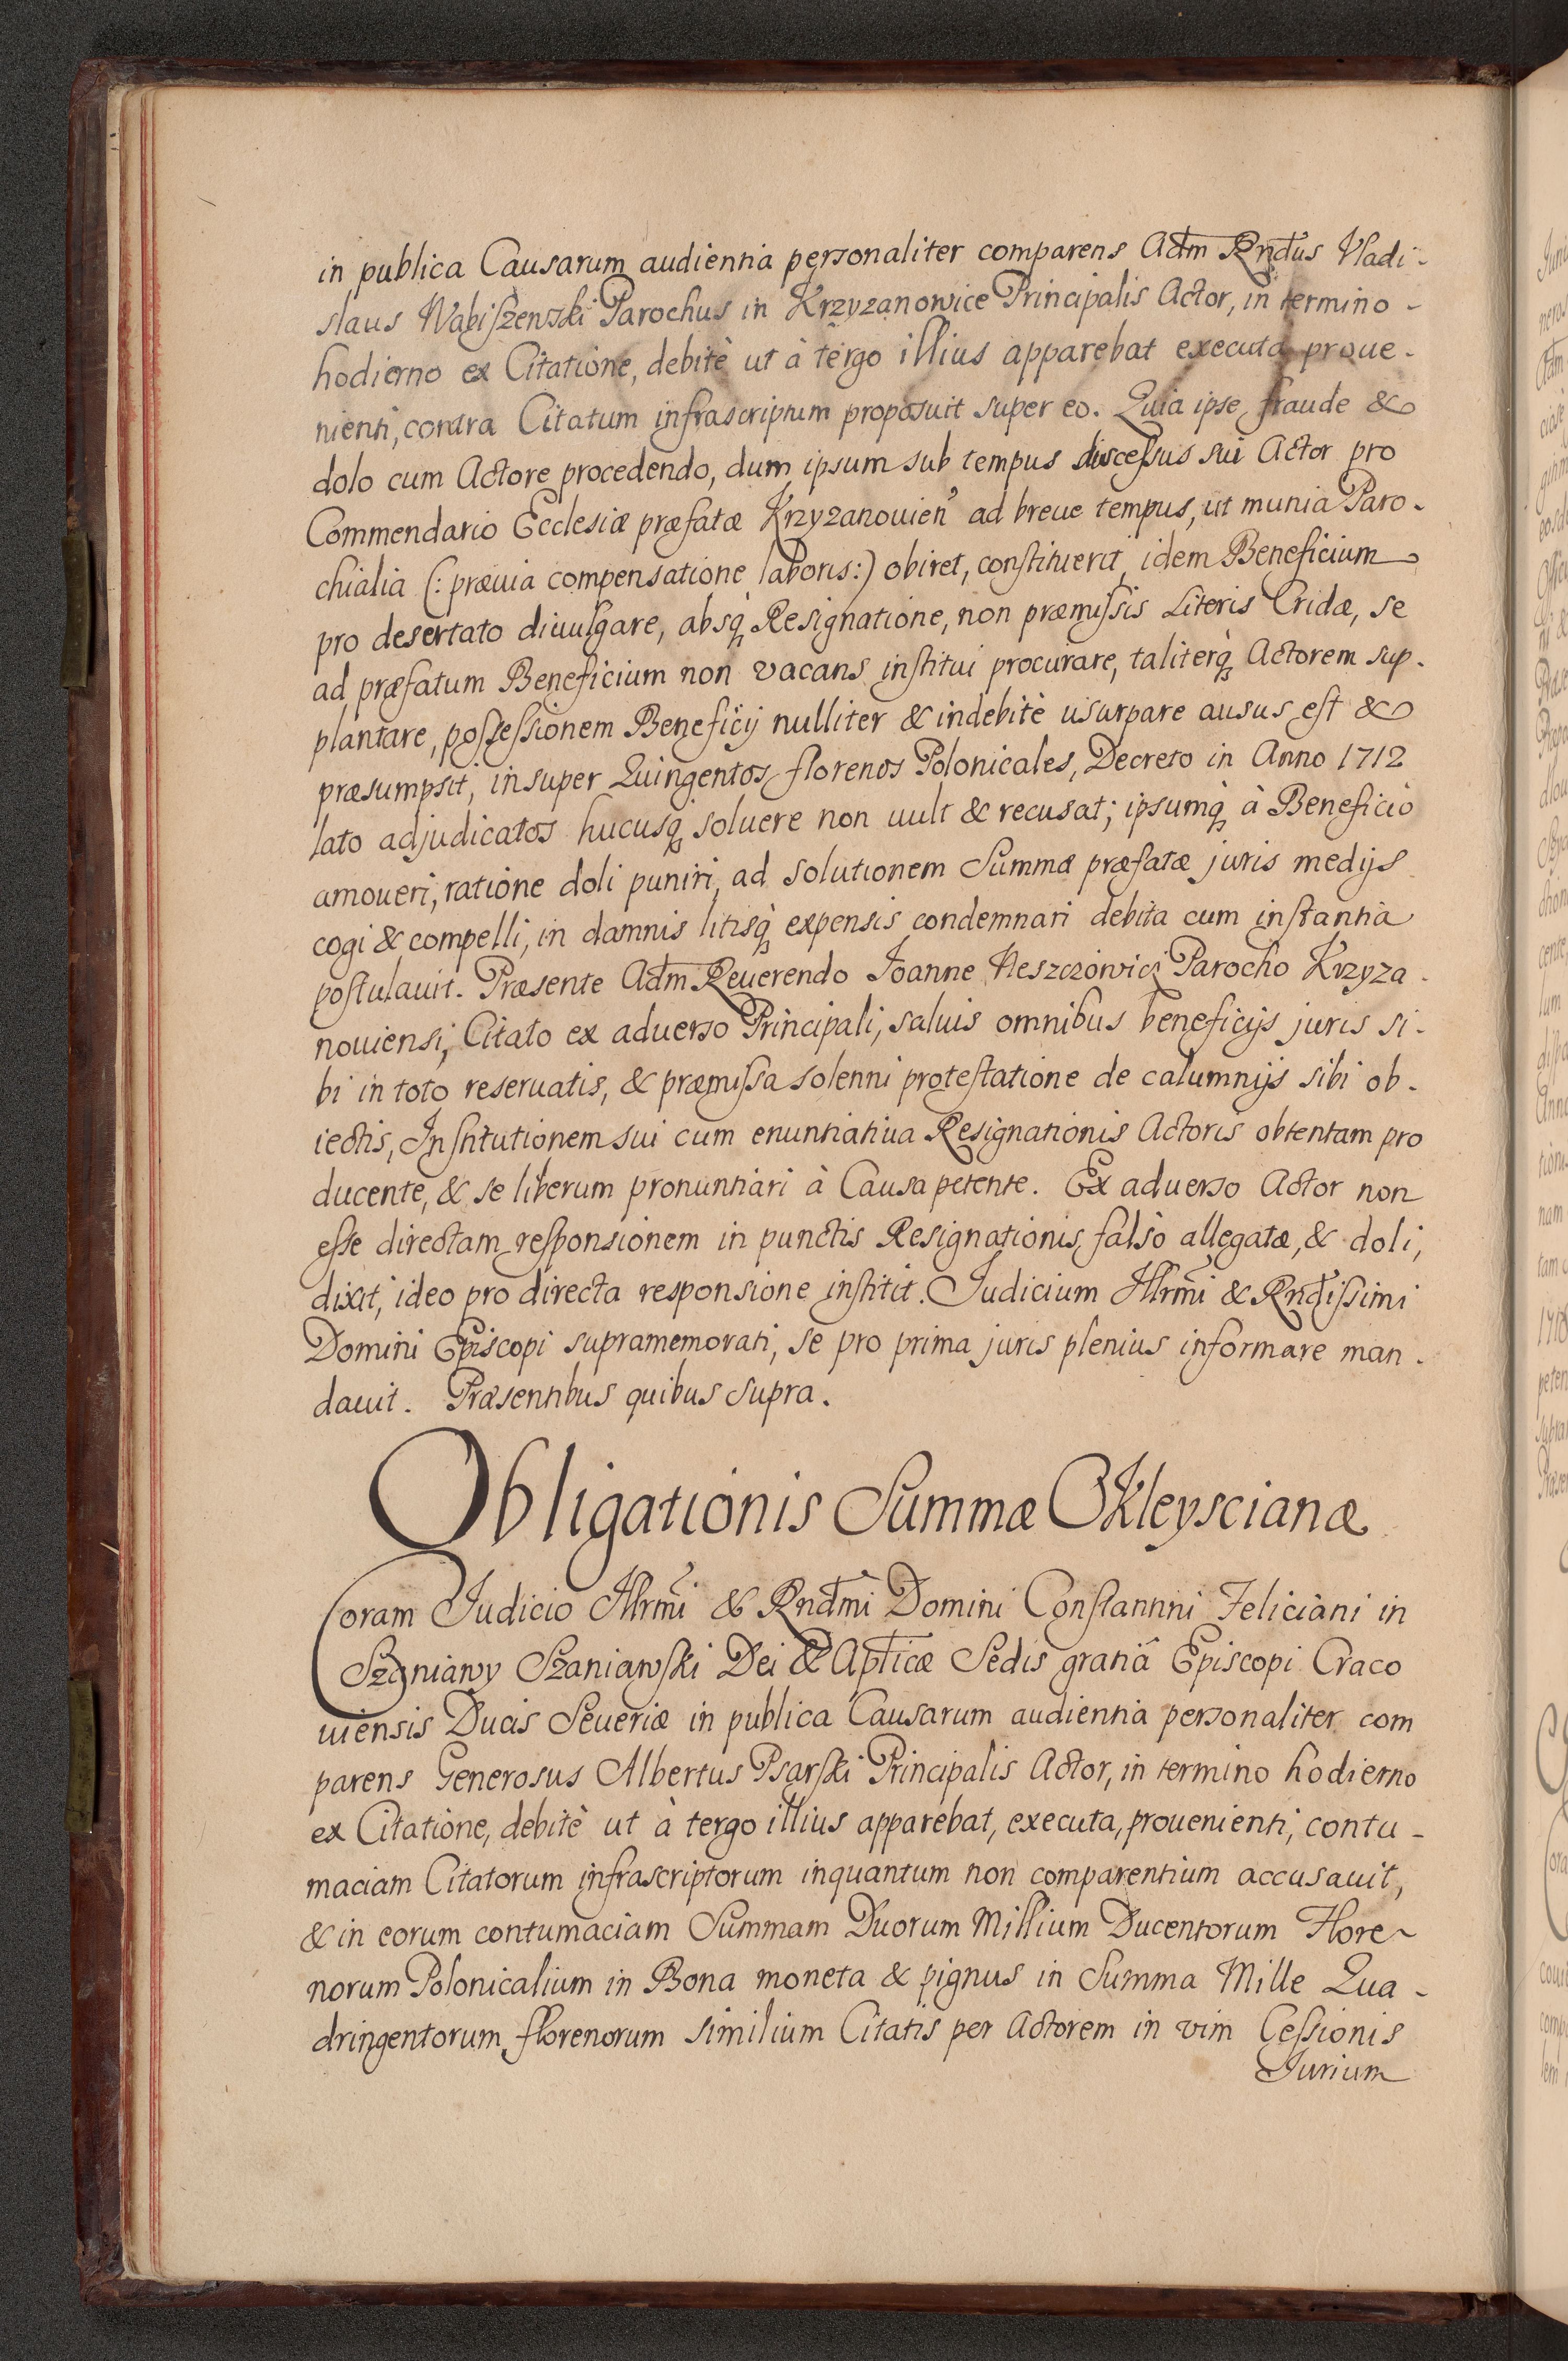 in publica Causarum audientia personaliter comparens Adm Rndus Vladi-
slaus Wabiszewski Parochus in Krzyzanowice Principalis Actor, in termino -
hodierno ex Citatione, debitè ut à tergo illius apparebat executa proue-
nienti, contra Citatum infrascriptum proposuit super eo. Quia ipse fraude &
dolo cum Actore procedendo, dum ipsum sub tempus discessus sui Actor pro
Commendario Ecclesiæ præfatæ Krzyzanouien' ad breue tempus, ut munia Paro-
chialia (: præuia compensatione laboris :) obiret, constituerit, idem Beneficium
pro desertato diuulgare, absq; Resignatione, non præmissis Literis Cridæ, se
ad præfatum Beneficium non vacans institui procurare, taliterq; Actorem sup-
plantare, possessionem Beneficij nulliter & indebitè usurpare ausus est &
præsumpsit, insuper Quingentos florenos Polonicales, Decreto in Anno 1712
lato adjudicatos hucusq; soluere non uult & recusat; ipsumq; à Beneficio
amoueri, ratione doli puniri, ad solutionem Summæ præfatæ juris medijs
cogi & compelli, in damnis litisq; expensis condemnari debita cum instantia
postulauit. Præsente Adm Reuerendo Ioanne Neszczowicz Parocho Krzyza-
nouiensi, Citato ex aduerso Principali, saluis omnibus beneficijs juris si-
bi in toto reseruatis, & præmissa solenni protestatione de calumnijs sibi ob-
iectis, Institutionem sui cum enuntiatiua Resignationis Actoris obtentam pro
ducente, & se liberum pronuntiari à Causa petente. Ex aduerso Actor non
esse directam responsionem in punctis Resignationis falsò allegatæ, & doli,
dixit, ideo pro directa responsione institit. Iudicium Illrmi & Rndissimi
Domini Episcopi supramemorati, se pro prima juris plenius informare man-
dauit. Præsentibus quibus supra.
Obligationis Summæ Okleyscianæ
Coram Iudicio Illrmi & Rndmi Domini Constantini Feliciani in
Szaniawy Szaniawski Dei & Aplicæ Sedis gratiâ Episcopi Craco
uiensis Ducis Seueriæ in publica Causarum audientia personaliter com
parens Generosus Albertus Psarski Principalis Actor, in termino hodierno
ex Citatione, debitè ut à tergo illius apparebat, executa, prouenienti, contu-
maciam Citatorum infrascriptorum inquantum non comparentium accusauit,
& in eorum contumaciam Summam Duorum Millium Ducentorum Flore-
norum Polonicalium in Bona moneta & pignus in Summa Mille Qua-
dringentorum florenorum similium Citatis per Actorem in vim Cessionis
Iurium